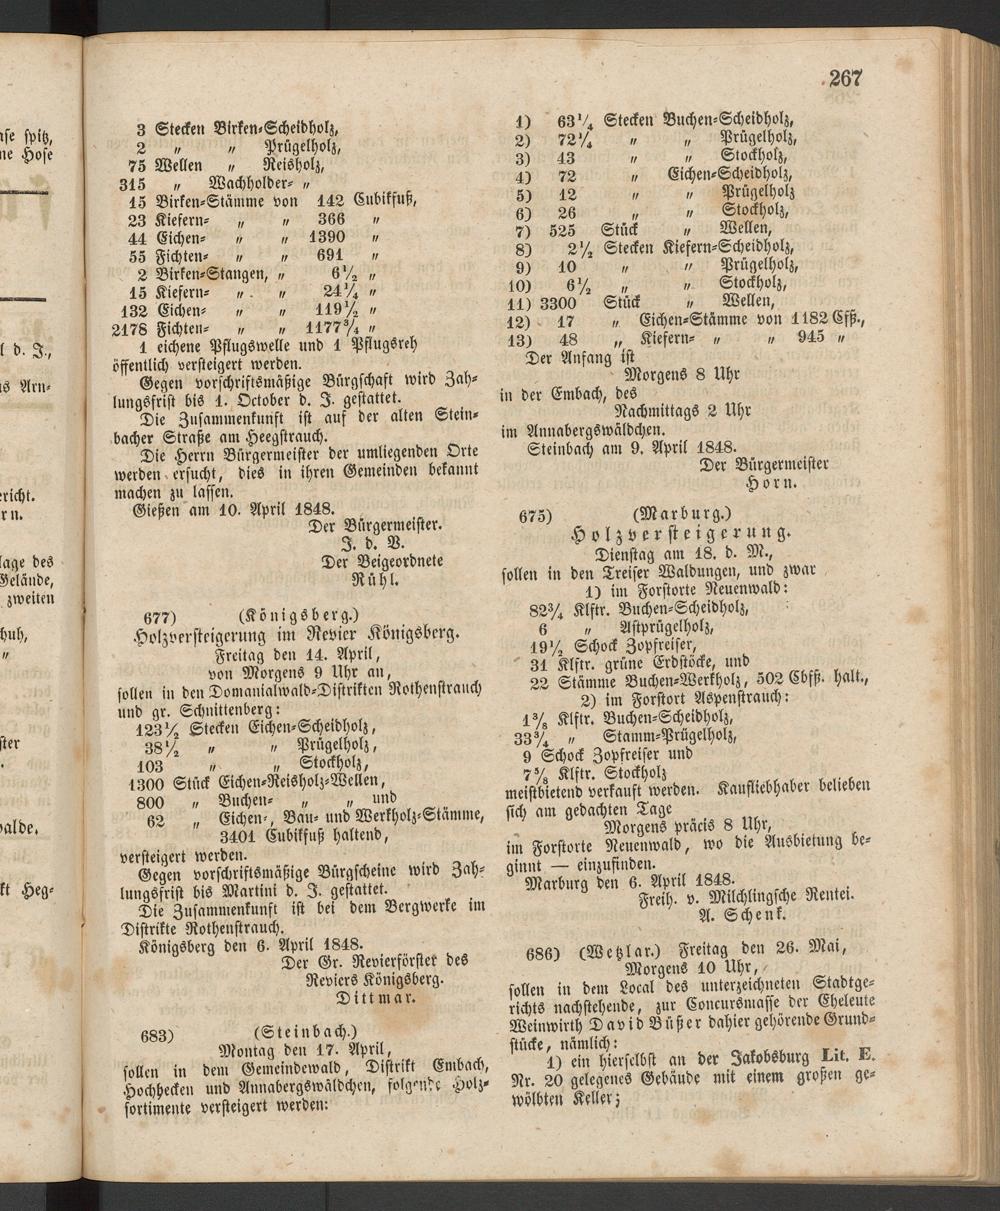 267
3 Stecken Birken-Scheidholz,
2 „ „ Prügelholz,
75 Wellen „ Reisholz,
315 „ Wachholder- „
15 Birken-Stämme von 142 Cubikfuß,
23 Kiefern- „ „ 366 „
44 Eichen- „ „ 1390 „
55 Fichten- „ „ 691 „
2 Birken-Stangen, „ 6½ „
15 Kiefern- „ „ 24¼ „
132 Eichen- „ „ 119½ „
2178 Fichten- „ „ 1177¾ „
1 eichene Pflugswelle und 1 Pflugsreh
öffentlich versteigert werden.
Gegen vorschriftsmäßige Bürgschaft wird Zah-
lungsfrist bis 1. October d. J. gestattet.
Die Zusammenkunft ist auf der alten Stein-
bacher Straße am Heegstrauch.
Die Herrn Bürgermeister der umliegenden Orte
werden ersucht, dies in ihren Gemeinden bekannt
machen zu lassen.
Gießen am 10. April 1848.
Der Bürgermeister.
J. d. V.
Der Beigeordnete
Rühl.
677) (Königsberg.)
Holzversteigerung im Revier Königsberg.
Freitag den 14. April,
von Morgens 9 Uhr an,
sollen in den Domanialwald-Distrikten Rothenstrauch
und gr. Schnittenberg:
123½ Stecken Eichen-Scheidholz,
38½ „ „ Prügelholz,
103 „ „ Stockholz,
1300 Stück Eichen-Reisholz-Wellen,
800 „ Buchen- „ „ und
62 „ Eichen-, Bau- und Werkholz-Stämme,
3401 Cubikfuß haltend,
versteigert werden.
Gegen vorschriftsmäßige Bürgscheine wird Zah-
lungsfrist bis Martini d. J. gestattet.
Die Zusammenkunft ist bei dem Bergwerke im
Distrikte Rothenstrauch.
Königsberg den 6. April 1848.
Der Gr. Revierförster des
Reviers Königsberg.
Dittmar.
683) (Steinbach.)
Montag den 17. April,
sollen in dem Gemeindewald, Distrikt Embach,
Hochbecken und Annabergswäldchen, folgende Holz-
sortimente versteigert werden:
1) 63¼ Stecken Buchen-Scheidholz,
2) 72¼ „ „ Prügelholz,
3) 43 „ „ Stockholz,
4) 72 „ Eichen-Scheidholz,
5) 12 „ „ Prügelholz
6) 26 „ „ Stockholz,
7) 525 Stück „ Wellen,
8) 2½ Stecken Kiefern-Scheidholz,
9) 10 „ „ Prügelholz,
10) 6½ „ „ Stockholz,
11) 3300 Stück „ Wellen,
12) 17 „ Eichen-Stämme von 1182 Cfß.,
13) 48 „ Kiefern- „ „ 945 „
Der Anfang ist
Morgens 8 Uhr
in der Embach, des
Nachmittags 2 Uhr
im Annabergswäldchen.
Steinbach am 9. April 1848.
Der Bürgermeister
Horn.
675) (Marburg.)
Holzversteigerung.
Dienstag am 18. d. M.,
sollen in den Treiser Waldungen, und zwar
1) im Forstorte Neuenwald:
82¾ Klftr. Buchen-Scheidholz,
6 „ Astprügelholz,
19½ Schock Zopfreiser,
31 Klftr. grüne Erdstöcke, und
22 Stämme Buchen-Werkholz, 502 Cbfß. halt.,
2) im Forstort Aspenstrauch:
1⅜ Klftr. Buchen-Scheidholz,
33¾ „ Stamm-Prügelholz,
9 Schock Zopfreiser und
7⅝ Klftr. Stockholz
meistbietend verkauft werden. Kaufliebhaber belieben
sich am gedachten Tage
Morgens präcis 8 Uhr,
im Forstorte Neuenwald, wo die Ausbietung be-
ginnt — einzufinden.
Marburg den 6. April 1848.
Freih. v. Milchlingsche Rentei.
A. Schenk.
686) (Wetzlar.) Freitag den 26. Mai,
Morgens 10 Uhr,
sollen in dem Local des unterzeichneten Stadtge-
richts nachstehende, zur Concursmasse der Eheleute
Weinwirth David Büßer dahier gehörende Grund-
stücke, nämlich:
1) ein hierselbst an der Jakobsburg Lit. E.
Nr. 20 gelegenes Gebäude mit einem großen ge-
wölbten Keller;